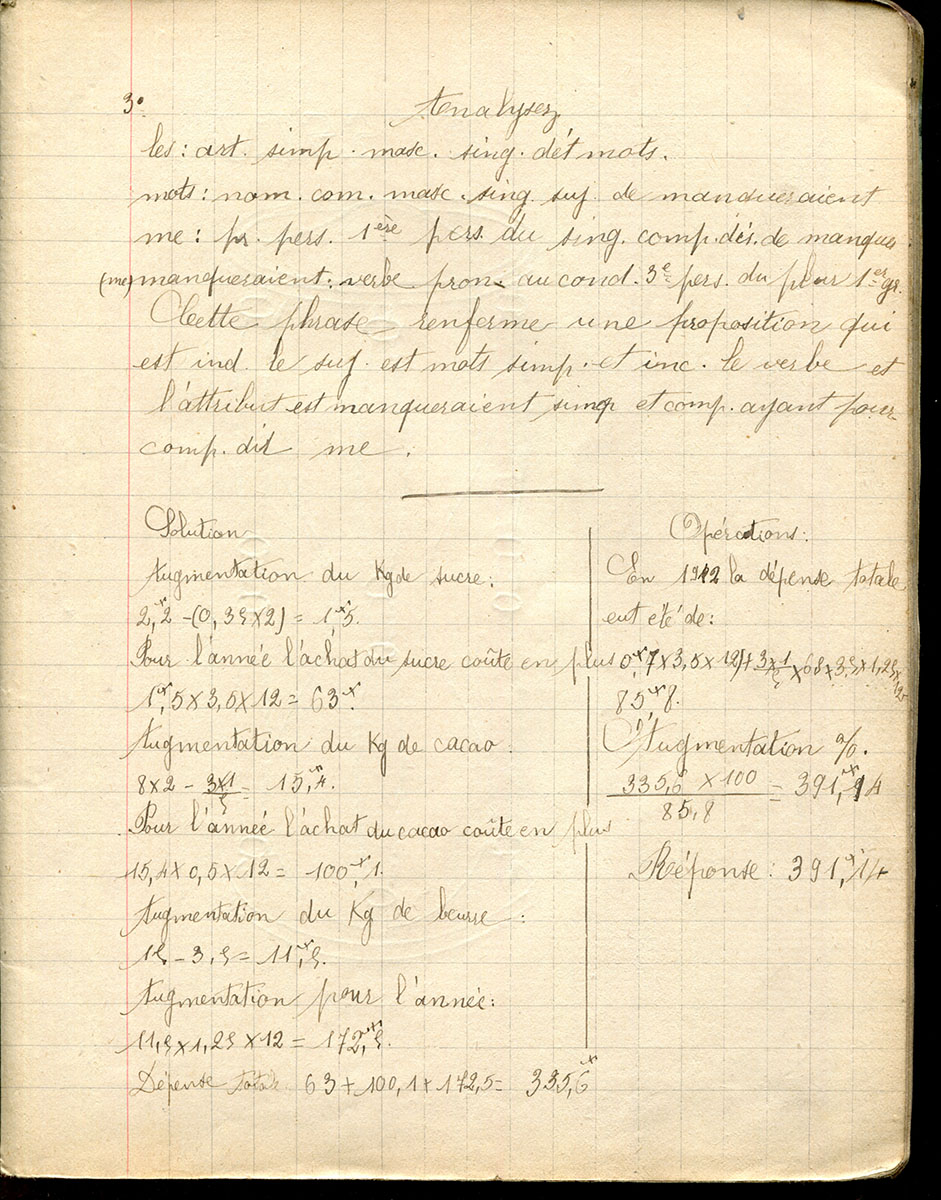 3°
Analysez
les : art. simp. masc. sing. dét mots.
mots : nom. com. masc. sing. suj. de manqueraient
me : pr. pers. 1ère pers. du sing. comp. dés. de manque
(me) manqueraient : verbe pron. au cond. 3e pers. du plur 1er gr.
Cette phrase renferme une proposition qui
est ind. le suj. est mots simp. et inc. le verbe et
l'attribut est manqueraient simp et comp. ayant pour
comp. dit me.
Solution
Augmentation du Kg de sucre :
2f,2 - (0,35 x 2) = 1f,5.
Pour l'année l'achat du sucre coûte en plus
1f,5 x 3,5 x 12 = 63f.
Augmentation du Kg de cacao.
8 x 2 - 3x1/5 = 15f,4.
Pour l'année l'achat du cacao coûte en plus
15,4 x 0,5 x 12 = 100f,1.
Augmentation du Kg de beurre :
15 - 3,5 = 11f,5.
Augmentation pour l'année :
11,5 x 1,25 x 12 = 172f,5.
Dépense totale 63 + 100,1 + 172,5 = 335,6f
Opérations :
En 1912 la dépense totale
eut été de :
0f,7 x 3,5 x 12) + 3x1/5 x 6,5 x 3,5 x 1,25 x
85f,8.
Augmentation %.
335,6 x 100 / 85,8 = 391f,14
Réponse : 391f,14